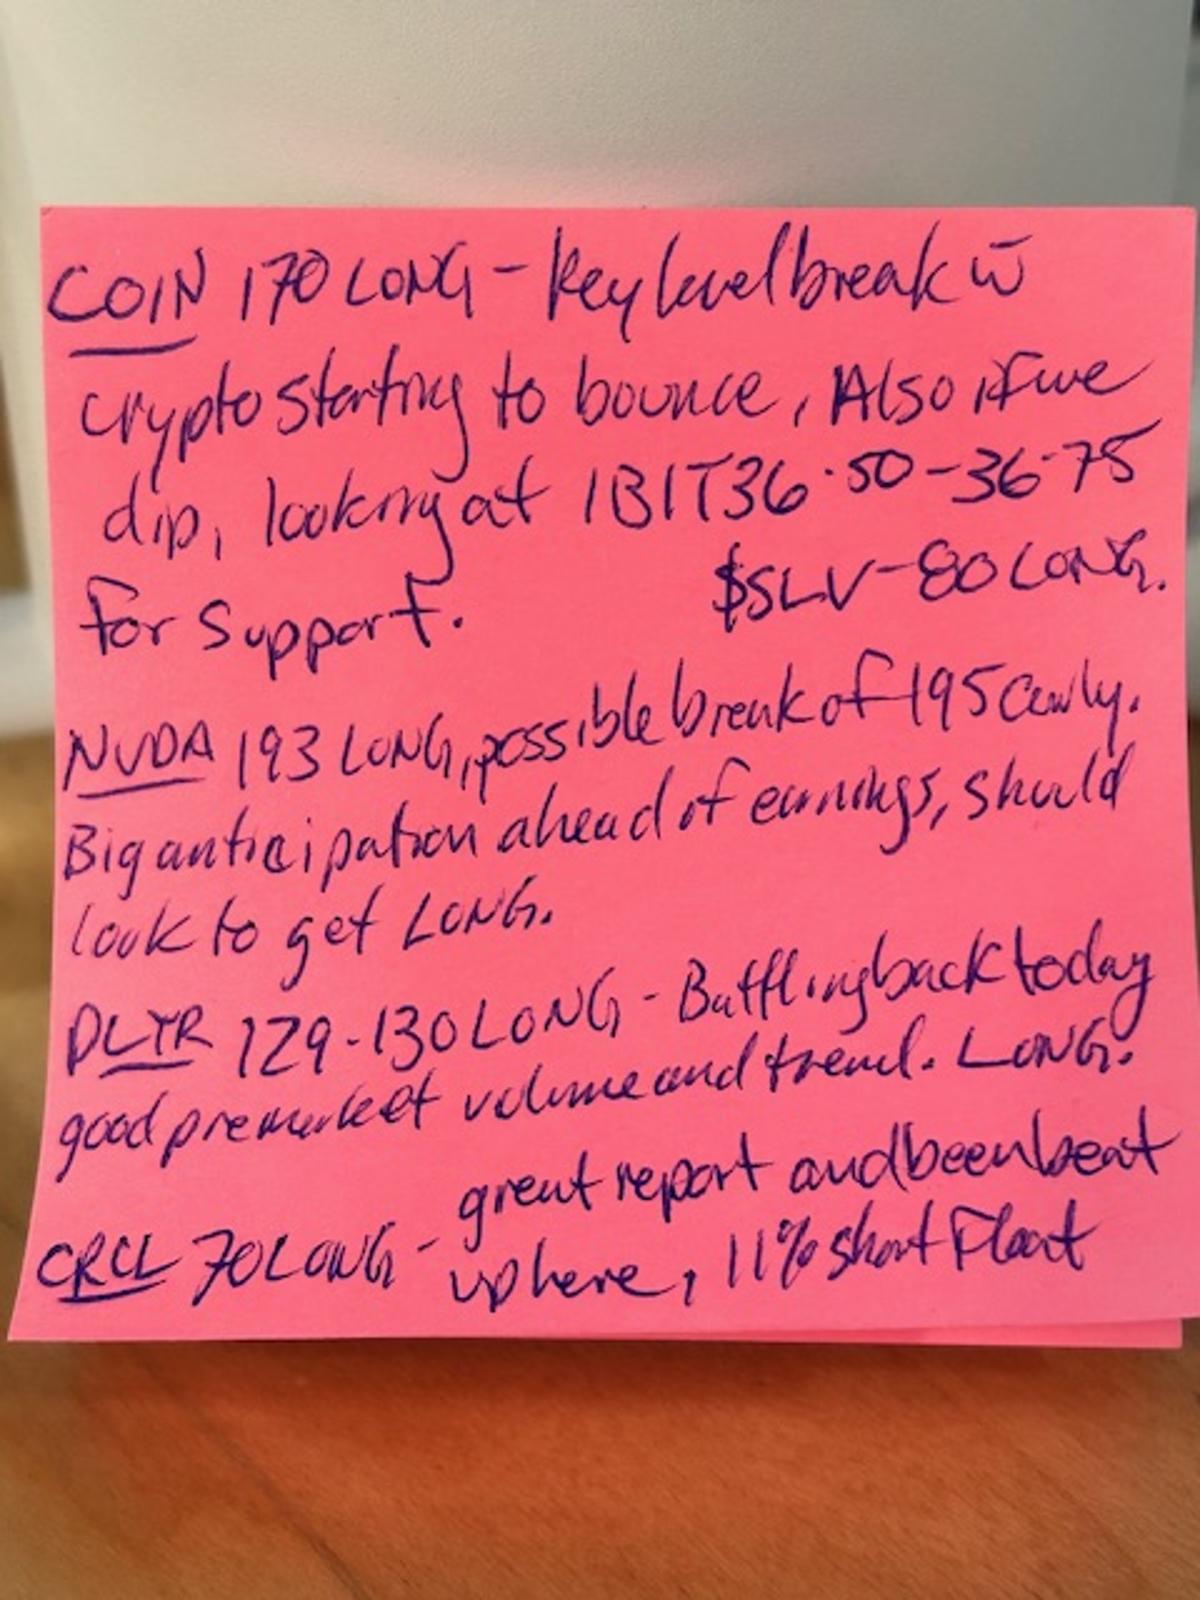 COIN 170 LONG - Key level break w̄
crypto starting to bounce, Also if we
dip, looking at IBIT 36.50-36.75
for support. $SLV - 80 LONG.
NVDA 193 LONG, possible break of 195 early.
Big anticipation ahead of earnings, should
look to get LONG.
DLTR 129-130 LONG - Battling back today
good premarket volume and trend. LONG.
CRCL 70 LONG - great report and been beat
up here, 11% short Float